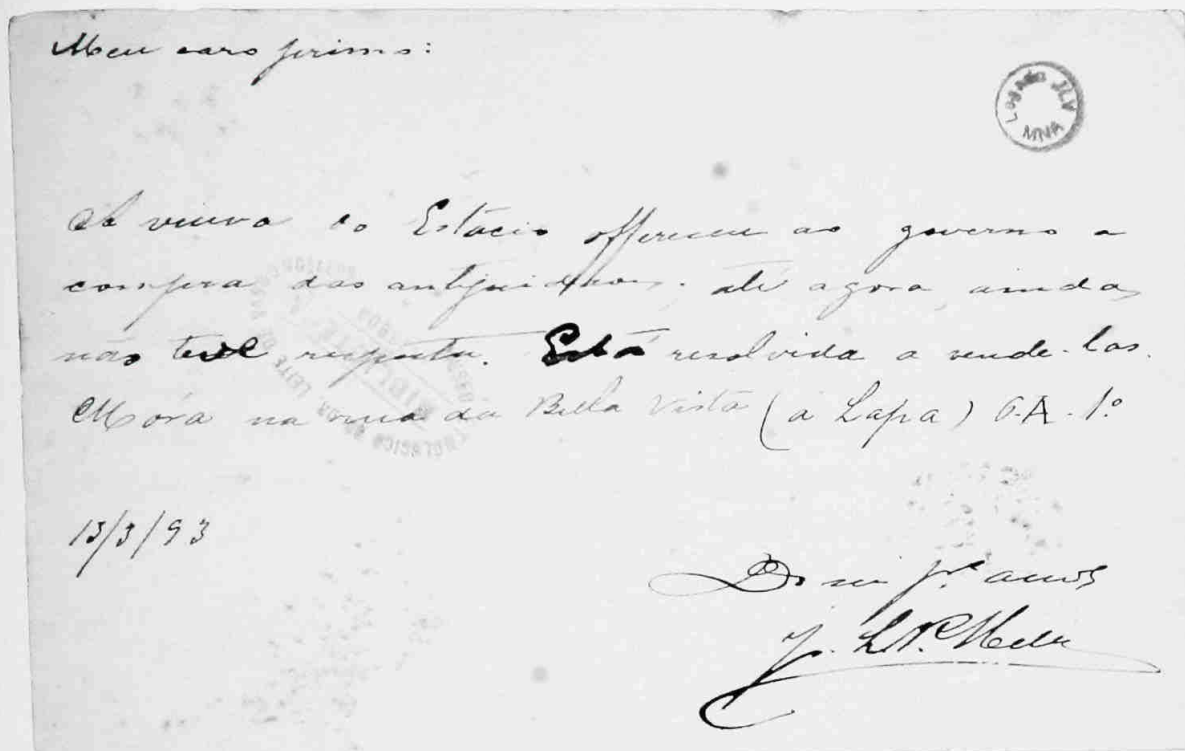 Meu caro primo:
Legado JLV
MNA
A viuva do Estacio offereceu ao governo a
compra das antiguidades. Até agora ainda
não teve resposta. Está resolvida a vende-las.
Mora na rua da Bella Vista (á Lapa) 6.A. 1º
13/3/93
De seu pº amº
J. L.